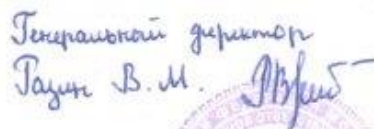 Генеральный директор
Гацин В. М.